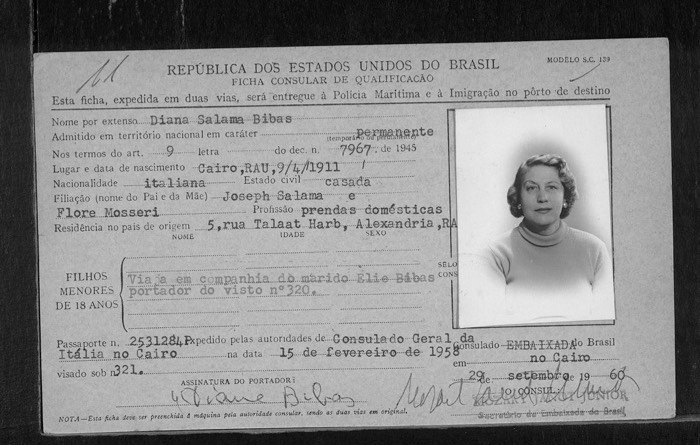 11
REPÚBLICA DOS ESTADOS UNIDOS DO BRASIL
MODÊLO S.C. 139
FICHA CONSULAR DE QUALIFICAÇÃO
Esta ficha, expedida em duas vias, será entregue à Polícia Marítima e à Imigração no pôrto de destino
Nome por extenso Diana Salama Bibas
Admitido em território nacional em caráter permanente
(temporário ou permanente)
Nos termos do art. 9 letra do dec. n. 7967, de 1945
Lugar e data de nascimento Cairo,RAU,9/4/1911
Nacionalidade italiana Estado civil casada
Filiação (nome do Pai e da Mãe) Joseph Salama e
Flore Mosseri Profissão prendas domésticas
Residência no país de origem 5,rua Talaat Harb, Alexandria,RA
NOME IDADE SEXO
FILHOS MENORES DE 18 ANOS
Via a em companhia do marido Elie Bibas
portador do visto nº320.
SÊLO
CONS
Passaporte n. 2531284P Expedido pelas autoridades de Consulado Geral da
Itália no Cairo na data 15 de fevereiro de 1958
visado sob n. 321.
Consulado EMBAIXADA do Brasil
em no Cairo
29 de setembro de 1960
ASSINATURA DO PORTADOR:
Diane Bibas
O CONSUL:
JUNIOR
Secretário da Embaixada do Brasil
NOTA—Esta ficha deve ser preenchida à máquina pela autoridade consular, sendo as duas vias em original.